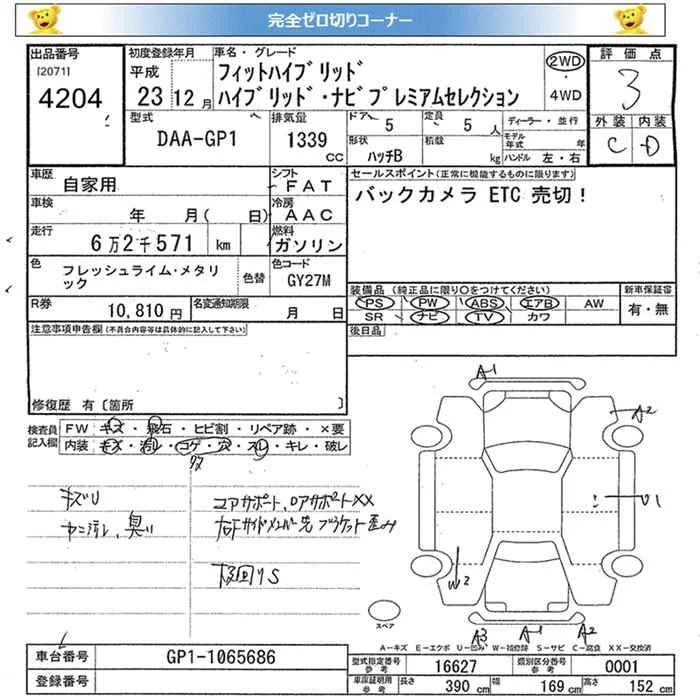 完全ゼロ切りコーナー
出品番号
[2071]
4204
初度登録年月
平成
23 12月
車名・グレード
フィットハイブリッド
ハイブリッド・ナビプレミアムセレクション
2WD
・
4WD
評価点
3
外装 内装
C D
型式
DAA-GP1
排気量
1339
cc
ドア 5
定員 5 人
形状
ハッチB
積載
kg
ディーラー・並行
モデル年式 年
ハンドル 左・右
車歴
自家用
シフト
FAT
車検
年 月( 日)
冷房
AAC
走行
6万2千571 km
燃料
ガソリン
色
フレッシュライム・メタリック
色替
色コード
GY27M
R券
10,810円
名変通知期限
月 日
セールスポイント(正常に機能するものに限ります)
バックカメラ ETC 売切!
装備品 (純正品に限り○をつけてください)
PS PW ABS エアB AW
SR ナビ TV カワ
新車保証書
有・無
後日品
注意事項申告欄(不具合内容等は具体的に記入して下さい)
修復歴 有〔箇所 〕
検査員記入欄
FW キズ・飛石・ヒビ割・リペア跡・×要
内装 キズ・汚レ・コゲ・穴・スレ・キレ・破レ
キズU
ヤニ汚レ、臭い
コアサポート、ロアサポートXX
右下サイドメンバー先 ブラケット歪み
下回りS
A-1
A2
U1
W2
A3
A-1
A2
スペア
A-キズ E-エクボ U-凹み W-補修跡 S-サビ C-腐食 XX-交換済
車台番号
GP1-1065686
登録番号
型式指定番号
参考
16627
類別区分番号
参考
0001
車庫証明用
参考
長さ 390 cm
幅 169 cm
高さ 152 cm